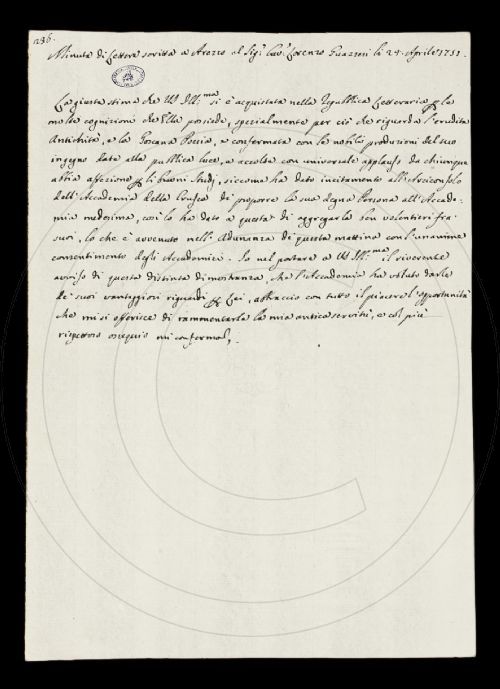 236.
Minuta di Lettera scritta a Arezzo al Sig.r Cav.r Lorenzo Guazzesi li 24. Aprile 1751.
La giusta stima che VS Ill:ma si è acquistata nella Repubblica Letteraria p le
molte cognizioni che Ella possiede, specialmente per ciò che riguarda l'erudita
Antichità, e la Toscana Poesia, e confermata con le nobili produzioni del suo
ingegno date alla pubblica luce, e accolse con universale applauso da chiunque
abbia affezione p li buoni Studj, siccome ha dato incitamento all'Arciconsolo
dell'Accademia della Crusca di proporre la sua degna Persona all'Accade-
mia medesima, così lo ha dato a questa di aggregarla ben volentieri fra
suoi, lo che è avvenuto nell'Adunanza di questa mattina con l'unanime
consentimento degli Accademici. Io nel portare a VS Ill:ma il riverente
avviso di questa distinta dimostranza, che l'Accademia ha voluto darle
de' suoi vantaggiosi riguardi p Lei, abbraccio con tutto il piacere l'opportunità
che mi si offerisce di rammentarle la mia antica servitù, e col più
rispettoso ossequio mi confermo